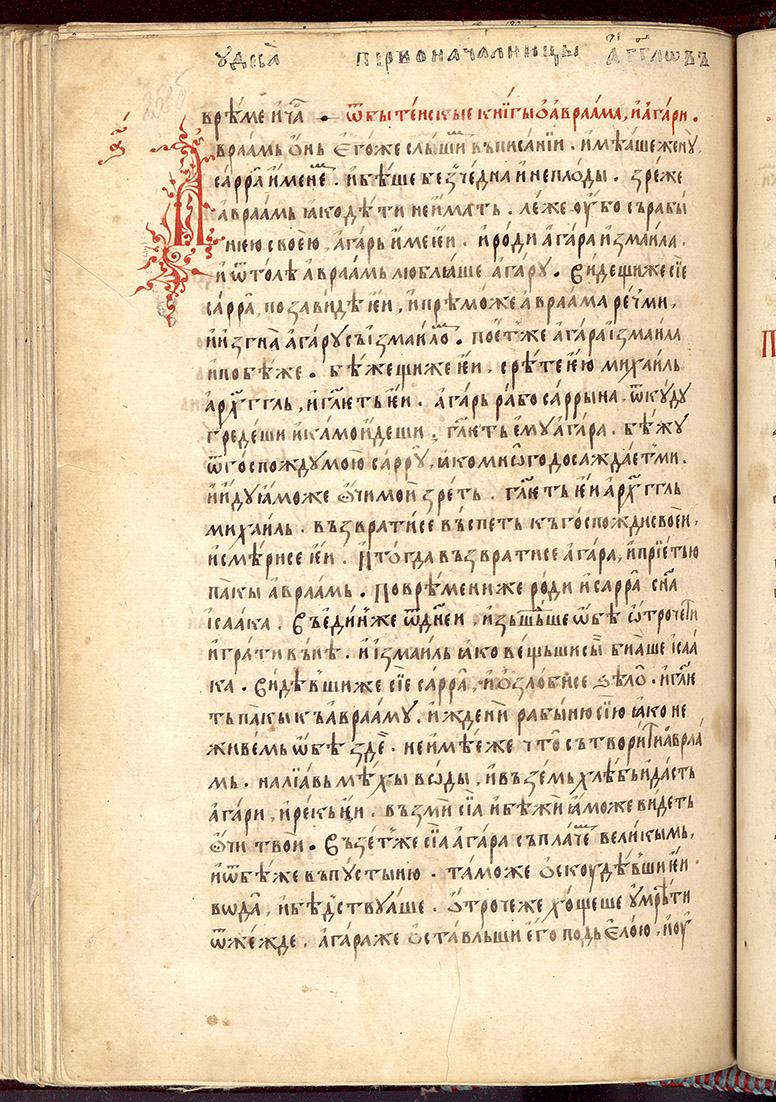 чꙋдеса̀ первоначалницы а҆гг҃ловь
врѣме и ча̑ . ѿ бытеискые книгы ѡ҆ авраама, и҆ агари .
Авраамь ѡ҆нь е҆гоже слышиш въ писанїи . имѣаше женꙋ,
сарра̀ именеⷨ . и҆ бѣше безчедна и҆ неплоды . зреже
авраамь ꙗко дѣти не имать . леже ᲂу҆бо съ рабы
нею своею, агарь именеи . и҆ роди агара измаила .
и҆ ѿтолѣ авраамь люблꙗше агарꙋ . видещи же сїе
сарра̀, позавидѣ ѥи, и҆ прѣможе авраама речми,
и҆ изгна агарꙋ съ измаиломⷨ . поет же агара измаила
и҆ побѣже . бѣжещи же ѥи . срѣте ю михаиль
архагг҃ль, и҆ гл҃ѥть ѥи . агарь рабо саррына . ѿкꙋдꙋ
гредеши и҆ камо идеши . гл҃ѥть емꙋ агара . бѣжꙋ
ѿ госпождꙋ мою саррꙋ, ꙗко много досаждает ми .
и҆ идꙋ ꙗможе ѡ҆чи мои зреть . гл҃ѥть ѥи архагг҃ль
михаиль . възвратисе въспеть къ госпожди своеи,
и҆ смѣрисе ѥи . И҆ тогда възвратисе агара, и҆ прїеть ю
пакы авраамь . По врѣмени же роди и҆ сарра̀ сн҃а
ісаака . Въ единⷤже ѿ дн҃еи . изьшⷣьше ѡбѣ ѡ҆трочети
играти вънѣ . и҆ измаиль ꙗко вещьши сы̀ бїꙗше ісаа
ка . Видѣвши же сїе сарра̀, и҆ ѡ҆злобисе ѕѣлѡ . и҆ гл҃ѥ
ть пакы къ авраамꙋ . иждени рабыню сїю ꙗко не
живемь ѡбѣ здѐ . не имѣе же что̀ сътворити авраа
мь . налїавь мѣхы воды, и҆ въземь хлѣбь и҆ дасть
агари, и҆ рекь ѥи . възми сїа и҆ бѣжи ꙗможе видеть
ѡ҆чи твои . Въземⷤже сїа агара съ плачемⷨ великымь,
и҆ ѿбѣже въ пꙋстыню . таможе ѡ҆скоудѣвши ѥи
вода̀, и҆ бѣдⷭствꙋаше . ѡ҆трочеже хощеше ꙋмрѣти
ѿ жежде . агара же ѡ҆ставльши его подь елою, и҆ оу